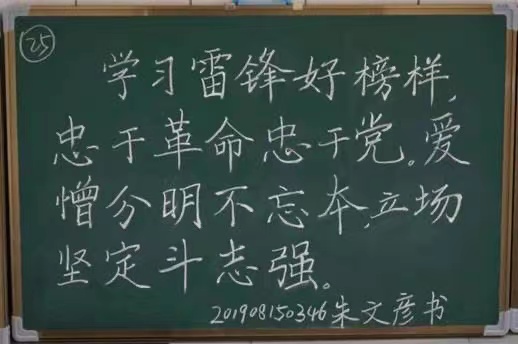 25
学习雷锋好榜样,
忠于革命忠于党。爱
憎分明不忘本,立场
坚定斗志强。
201908150346朱文彦书